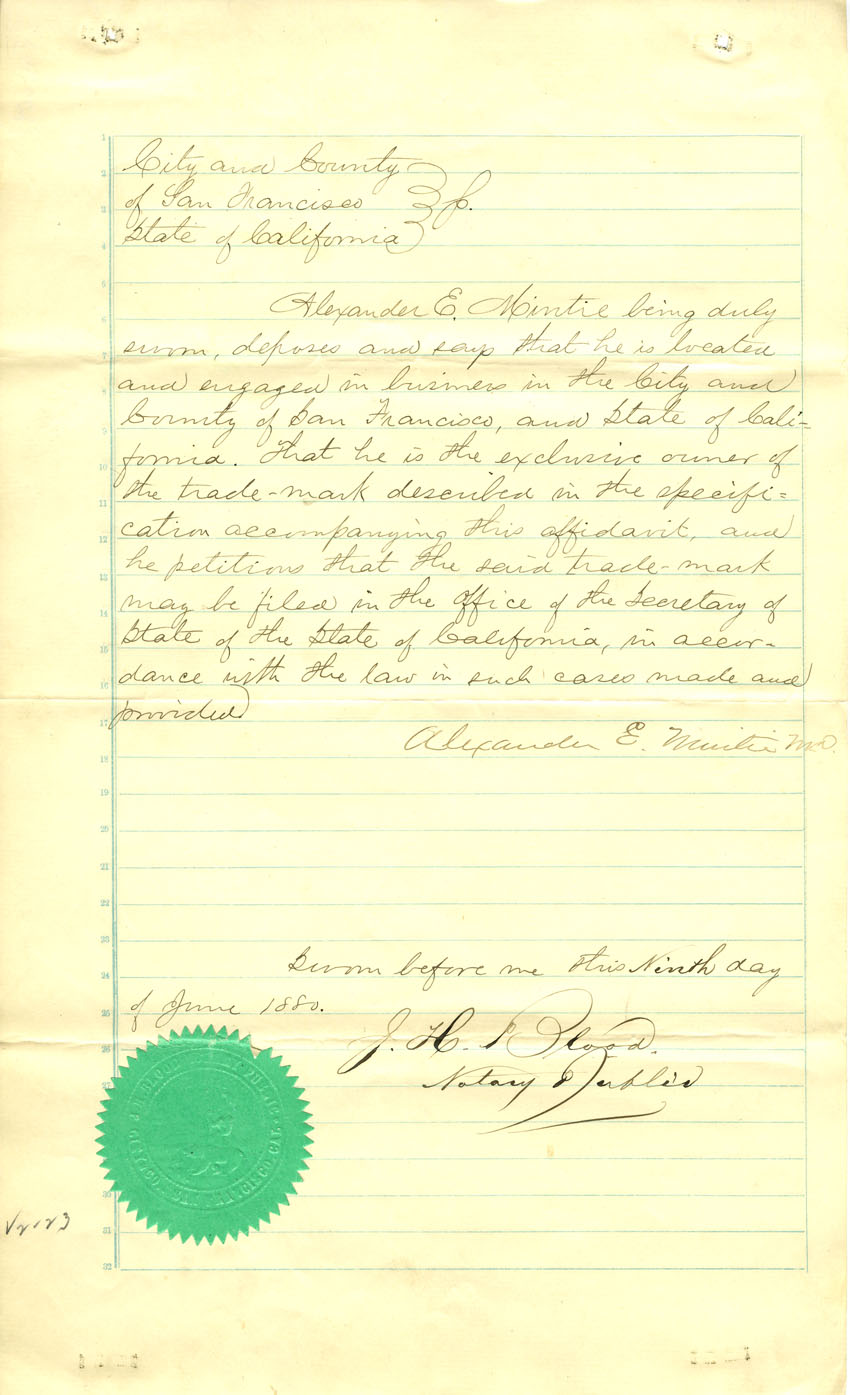 City and County
of San Francisco } ss.
State of California
Alexander E. Mintie being duly
sworn, deposes and says that he is located
and engaged in business in the City and
County of San Francisco, and State of Cali-
fornia. That he is the exclusive owner of
the trade-mark described in the specifi=
cation accompanying this affidavit, and
he petitions that the said trade-mark
may be filed in the office of the Secretary of
State of the State of California, in accor-
dance with the law in such cases made and
provided
Alexander E. Mintie M.D.
Sworn before me this Ninth day
of June 1880.
J. H. Blood.
Notary Public